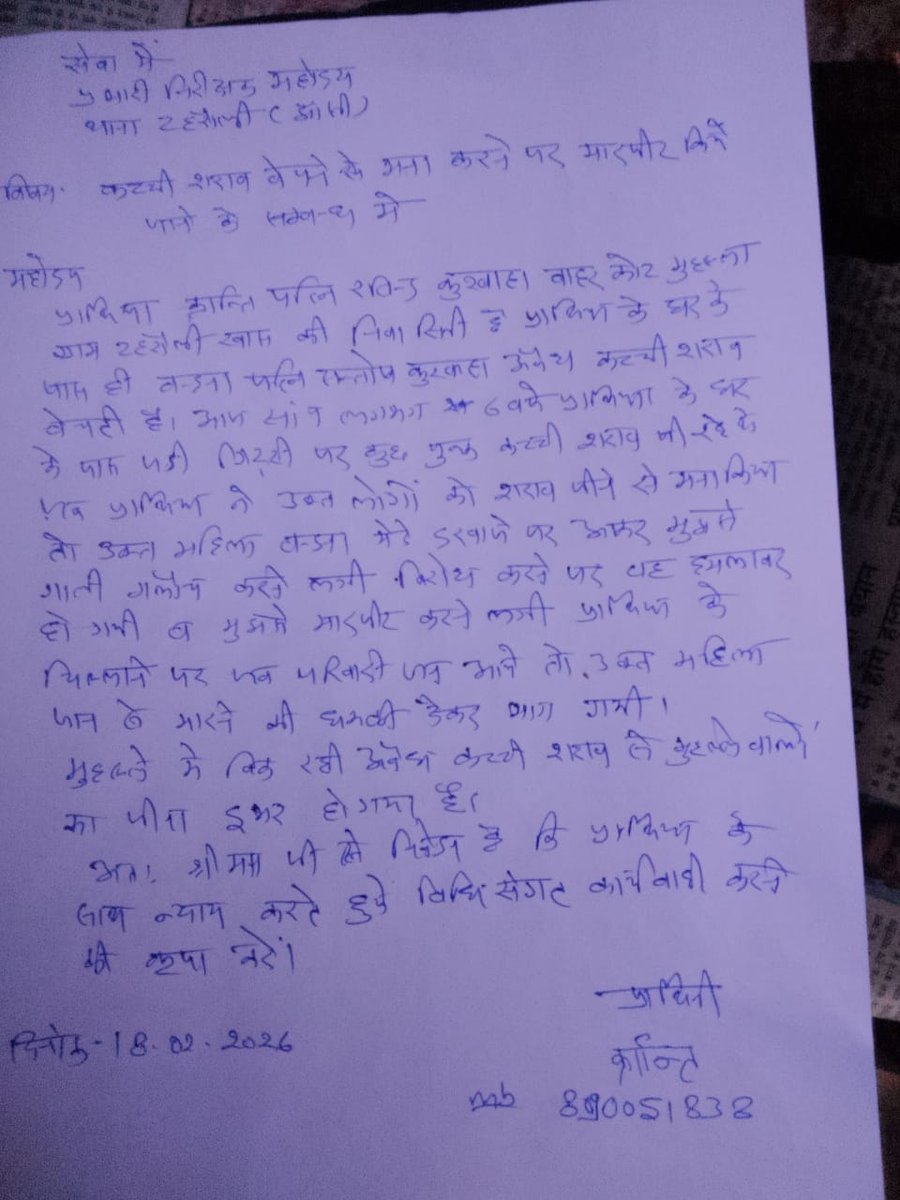 सेवा में
प्रभारी निरीक्षक महोदय
थाना टहरौली (झाँसी)
विषय- कच्ची शराब बेचने से मना करने पर मारपीट किये
जाने के सम्बन्ध में
महोदय
प्रार्थिया क्रान्ति पत्नि रविन्द्र कुशवाहा बाहर कोट मुहल्ला
ग्राम टहरौली खास की निवासिनी है प्रार्थिया के घर के
पास ही वन्दना पत्नि सन्तोष कुशवाहा अवैध कच्ची शराब
बेचती है। आज सांय लगभग 6 बजे प्रार्थिया के घर
के पास पडी मिट्टी पर कुछ युवक कच्ची शराब पी रहे थे
जब प्रार्थिया ने उक्त लोगों को शराब पीने से मना किया
तो उक्त महिला वन्दना मेरे दरवाजे पर आकर मुझसे
गाली गलौच करने लगी विरोध करने पर वह हमलावर
हो गयी व मुझसे मारपीट करने लगी प्रार्थिया के
चिल्लाने पर जब परिवारी जन आये तो उक्त महिला
जान से मारने की धमकी देकर भाग गयी।
मुहल्ले में बिक रही अवैध कच्ची शराब से मुहल्ले वालों
का जीना दूभर हो गया है।
अतः श्रीमान जी से निवेदन है कि प्रार्थिया के
साथ न्याय करते हुये विधि संगत कार्यवाही करने
की कृपा करें।
प्रार्थिनी
क्रान्ति
दिनांक- 18.02.2026
mb 890051838